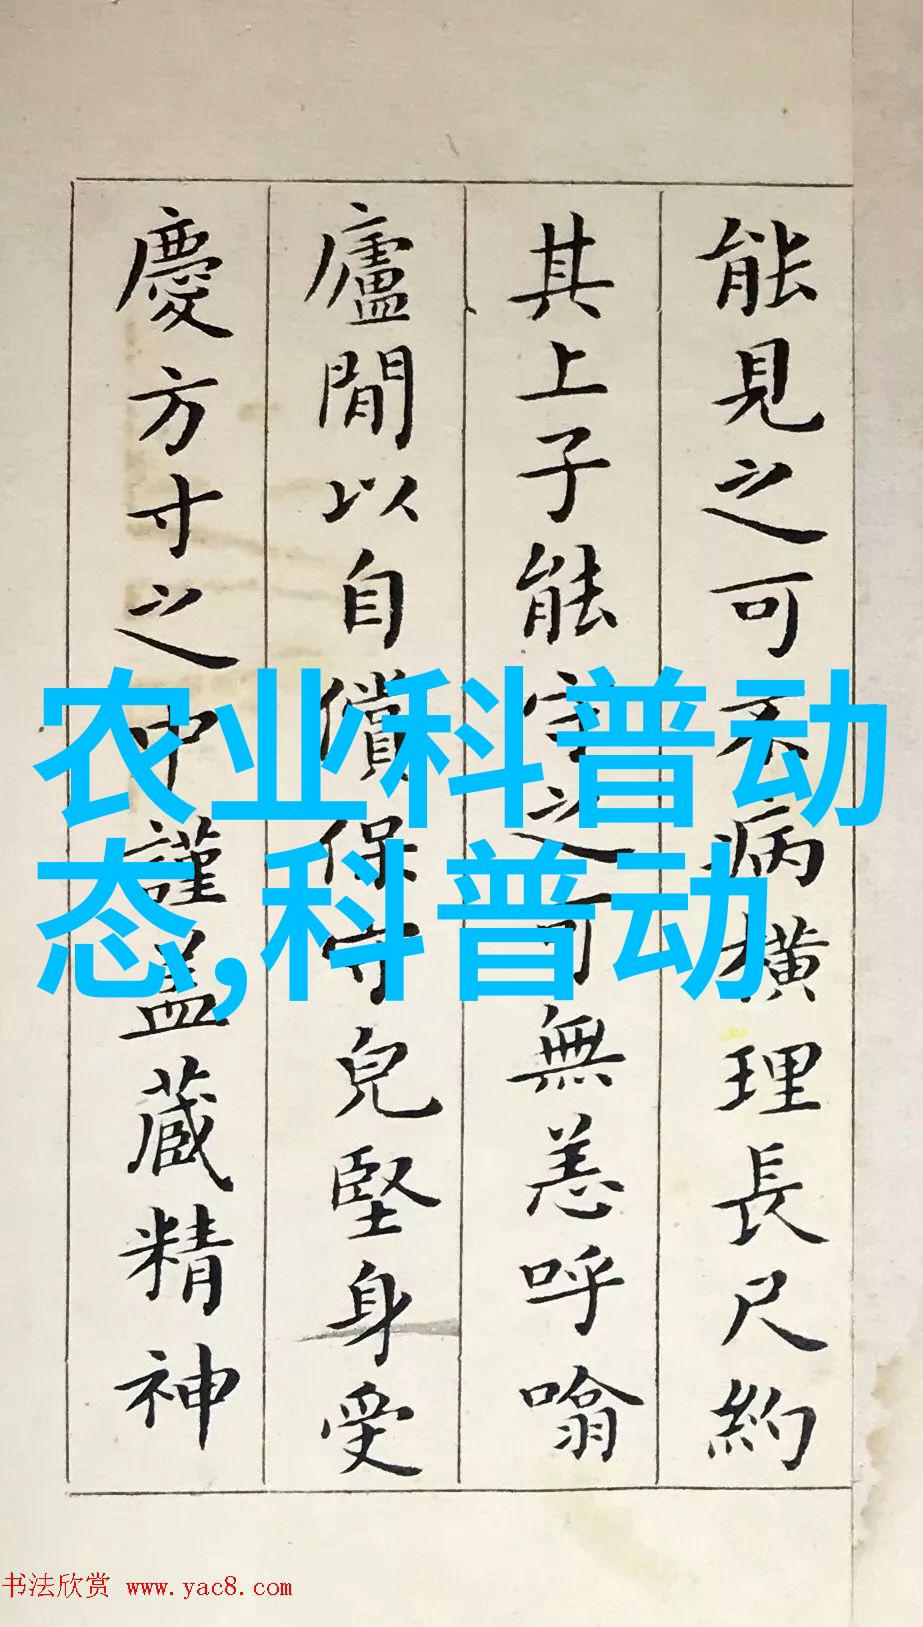 能見之可不病橫理長尺約
其上子能守之可無恙呼噏
廬間以自償保守皃堅身受
慶方寸之中謹盖藏精神
农业科普动
态,科普动
书法欣赏 www.yac8.com